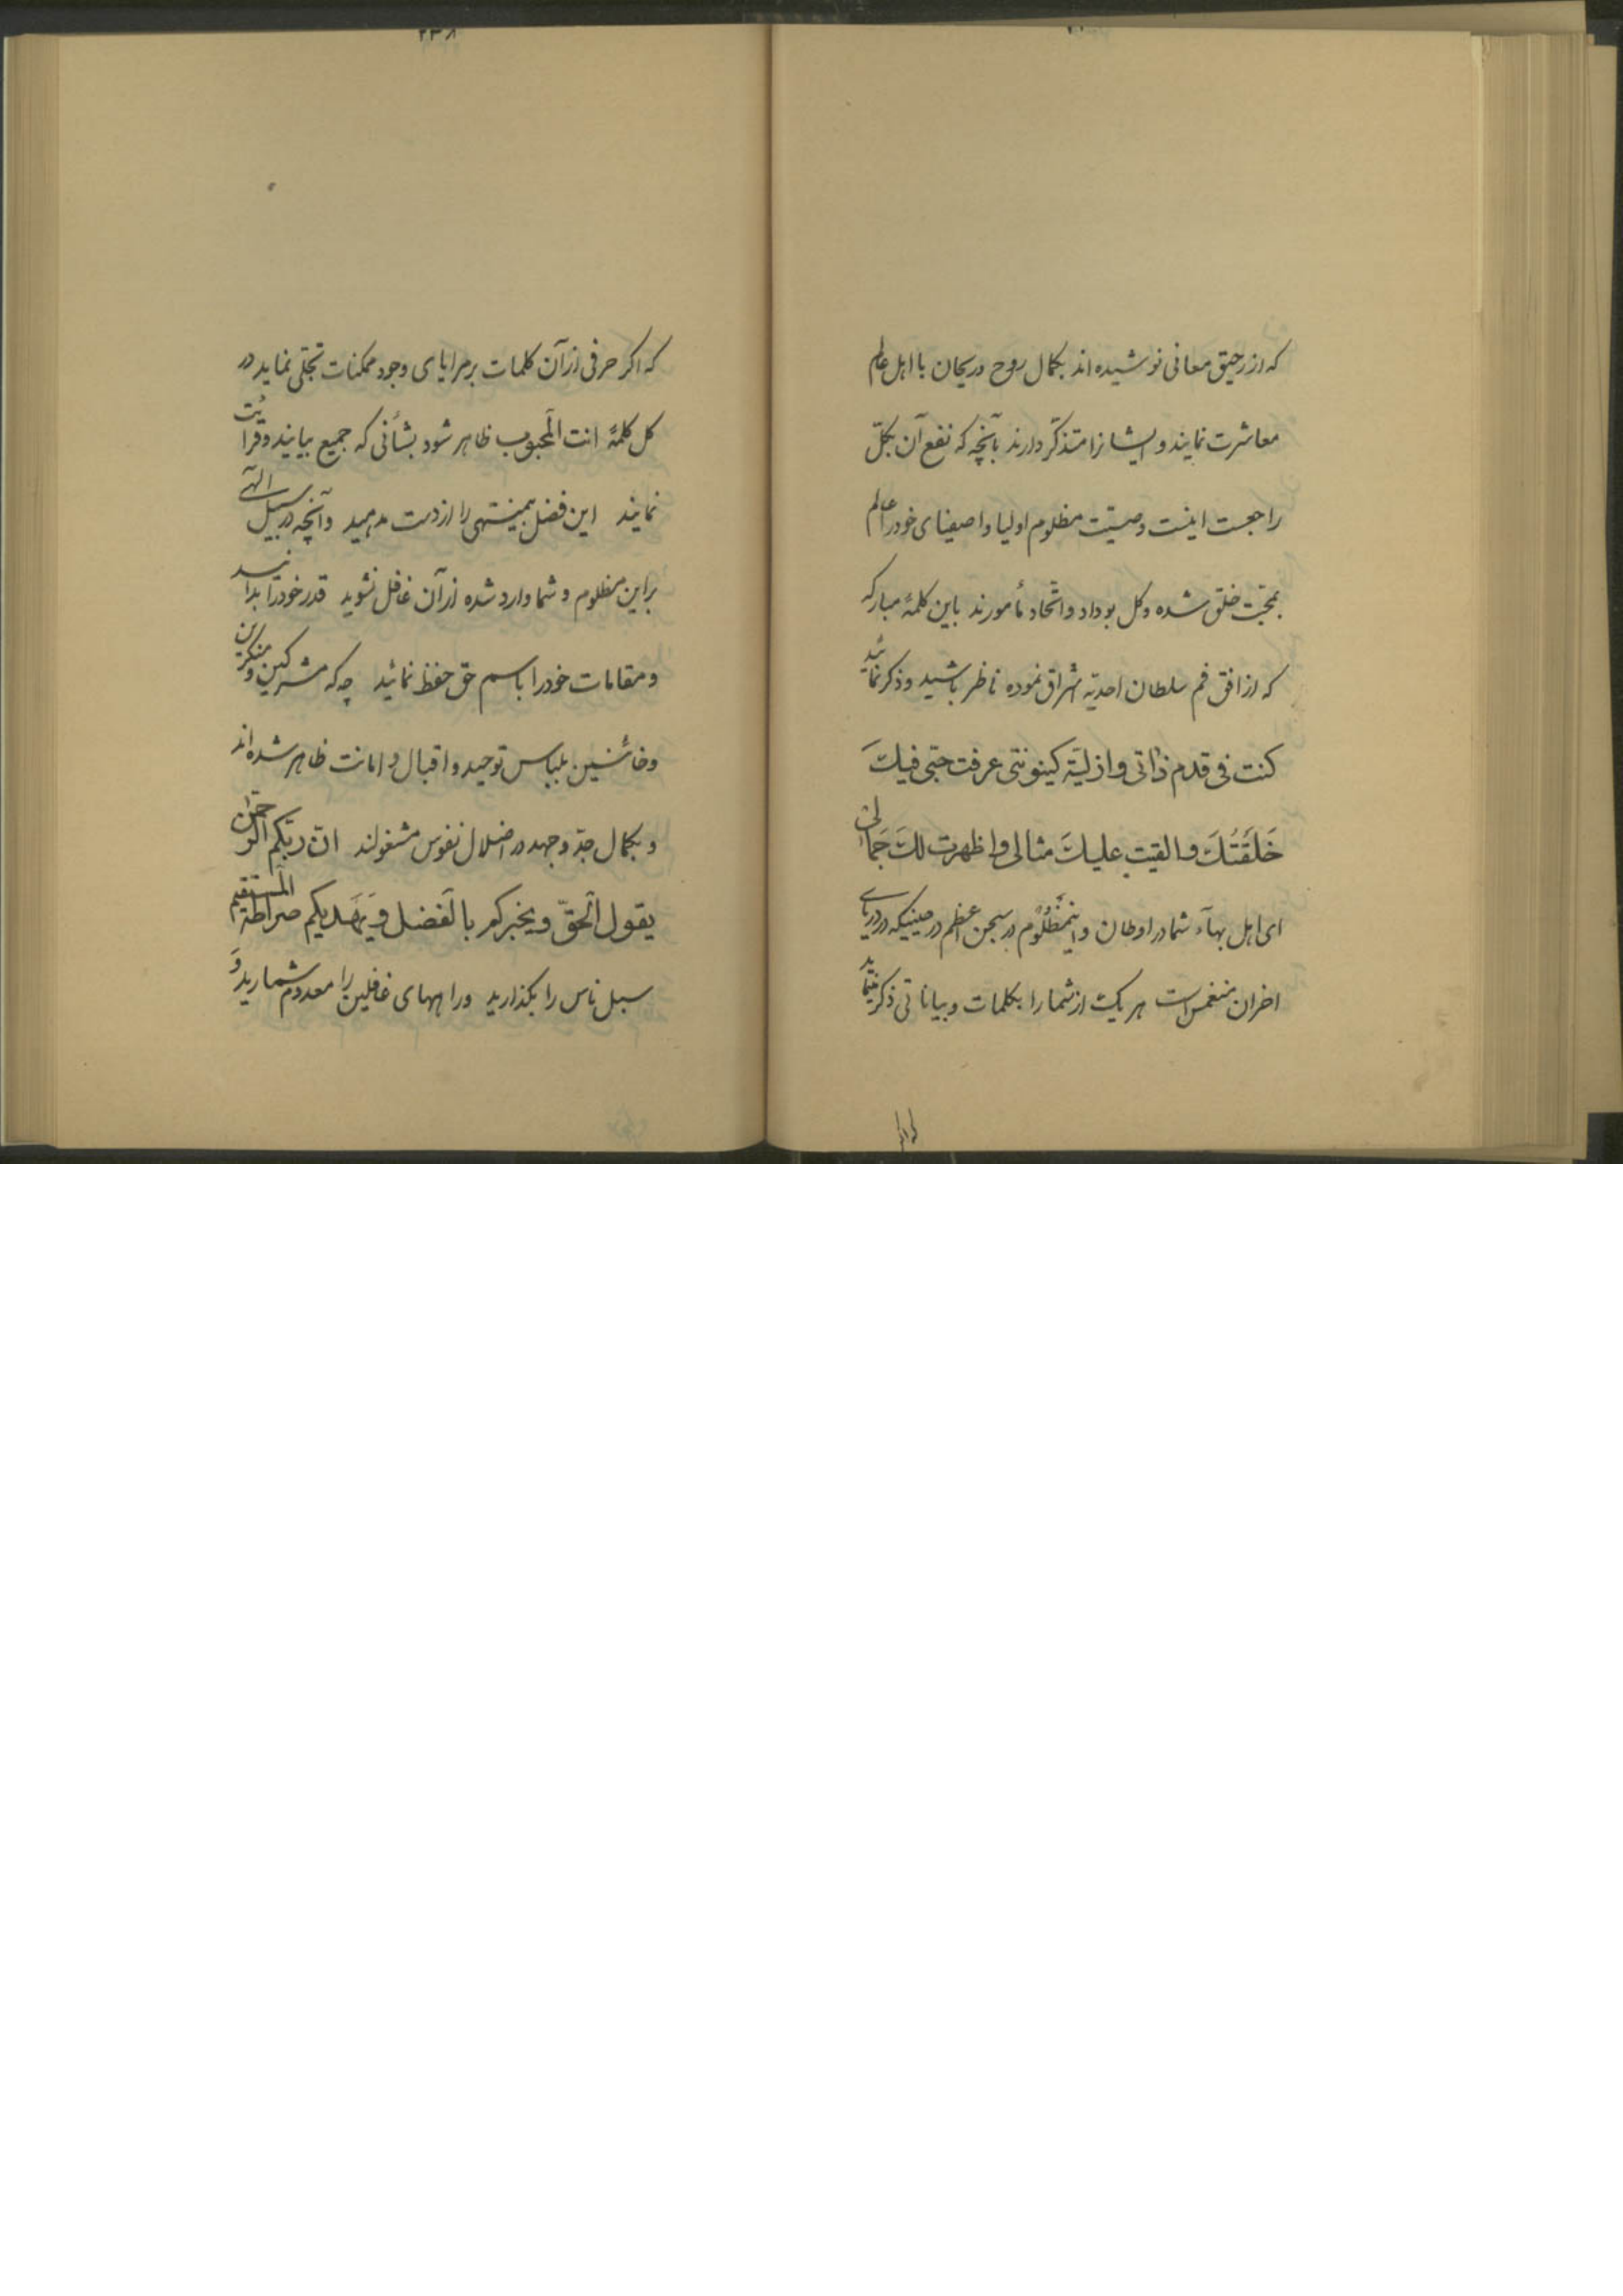 که از رحیق معانی نوشیده‌اند بکمال روح و ریحان با اهل عالم
معاشرت نمایند و ایشانرا متذکّر دارند بآنچه که نفع آن بکلّ
راجعست اینست وصیّت مظلوم اولیا و اصفیای خود را عالم
بمحبّت خلق شده و کل بوداد و اتّحاد مأمورند باین کلمهٔ مبارکه
که از افق فم سلطان احدیّه اشراق نموده ناظر باشید و ذکر نمائید
کنت فی قدم ذاتی و ازلیّة کینونتی عرفت حبّی فیكَ
خَلَقتُكَ و القیت علیكَ مثالی و اظهرت لكَ جَمالی
ای اهل بهآء شما در اوطان و اینمظلُوم در سجن اعظم در حینیکه در دریای
احزان منغمس است هر یک از شما را بکلمات و بیاناتی ذکر مینماید
که اگر
۲۳۸
که اگر حرفی از آن کلمات بر مرایای وجود ممکنات تجلّی نماید در
کل کلمهٔ انت المحبوب ظاهر شود بشأنی که جمیع بیابند و قرائت
نمایند این فضل بیمنتهی را از دست مدهید و آنچه در سبیل الهی
بر این مظلوم و شما وارد شده از آن غافل نشوید قدر خود را بدانید
و مقامات خود را باسم حق حفظ نمائید چه که مشرکین و منکرین
و خائنین بلباس توحید و اقبال و امانت ظاهر شده‌اند
و بکمال جدّ و جهد در اضلال نفوس مشغولند انّ ربّکم الرّحمن
یقول الحقّ و یخبرکم بالفضل و یَهَدیکم صراطه المستقیم
سبل ناس را بگذارید و راههای غافلین را معدوم شمارید وَ